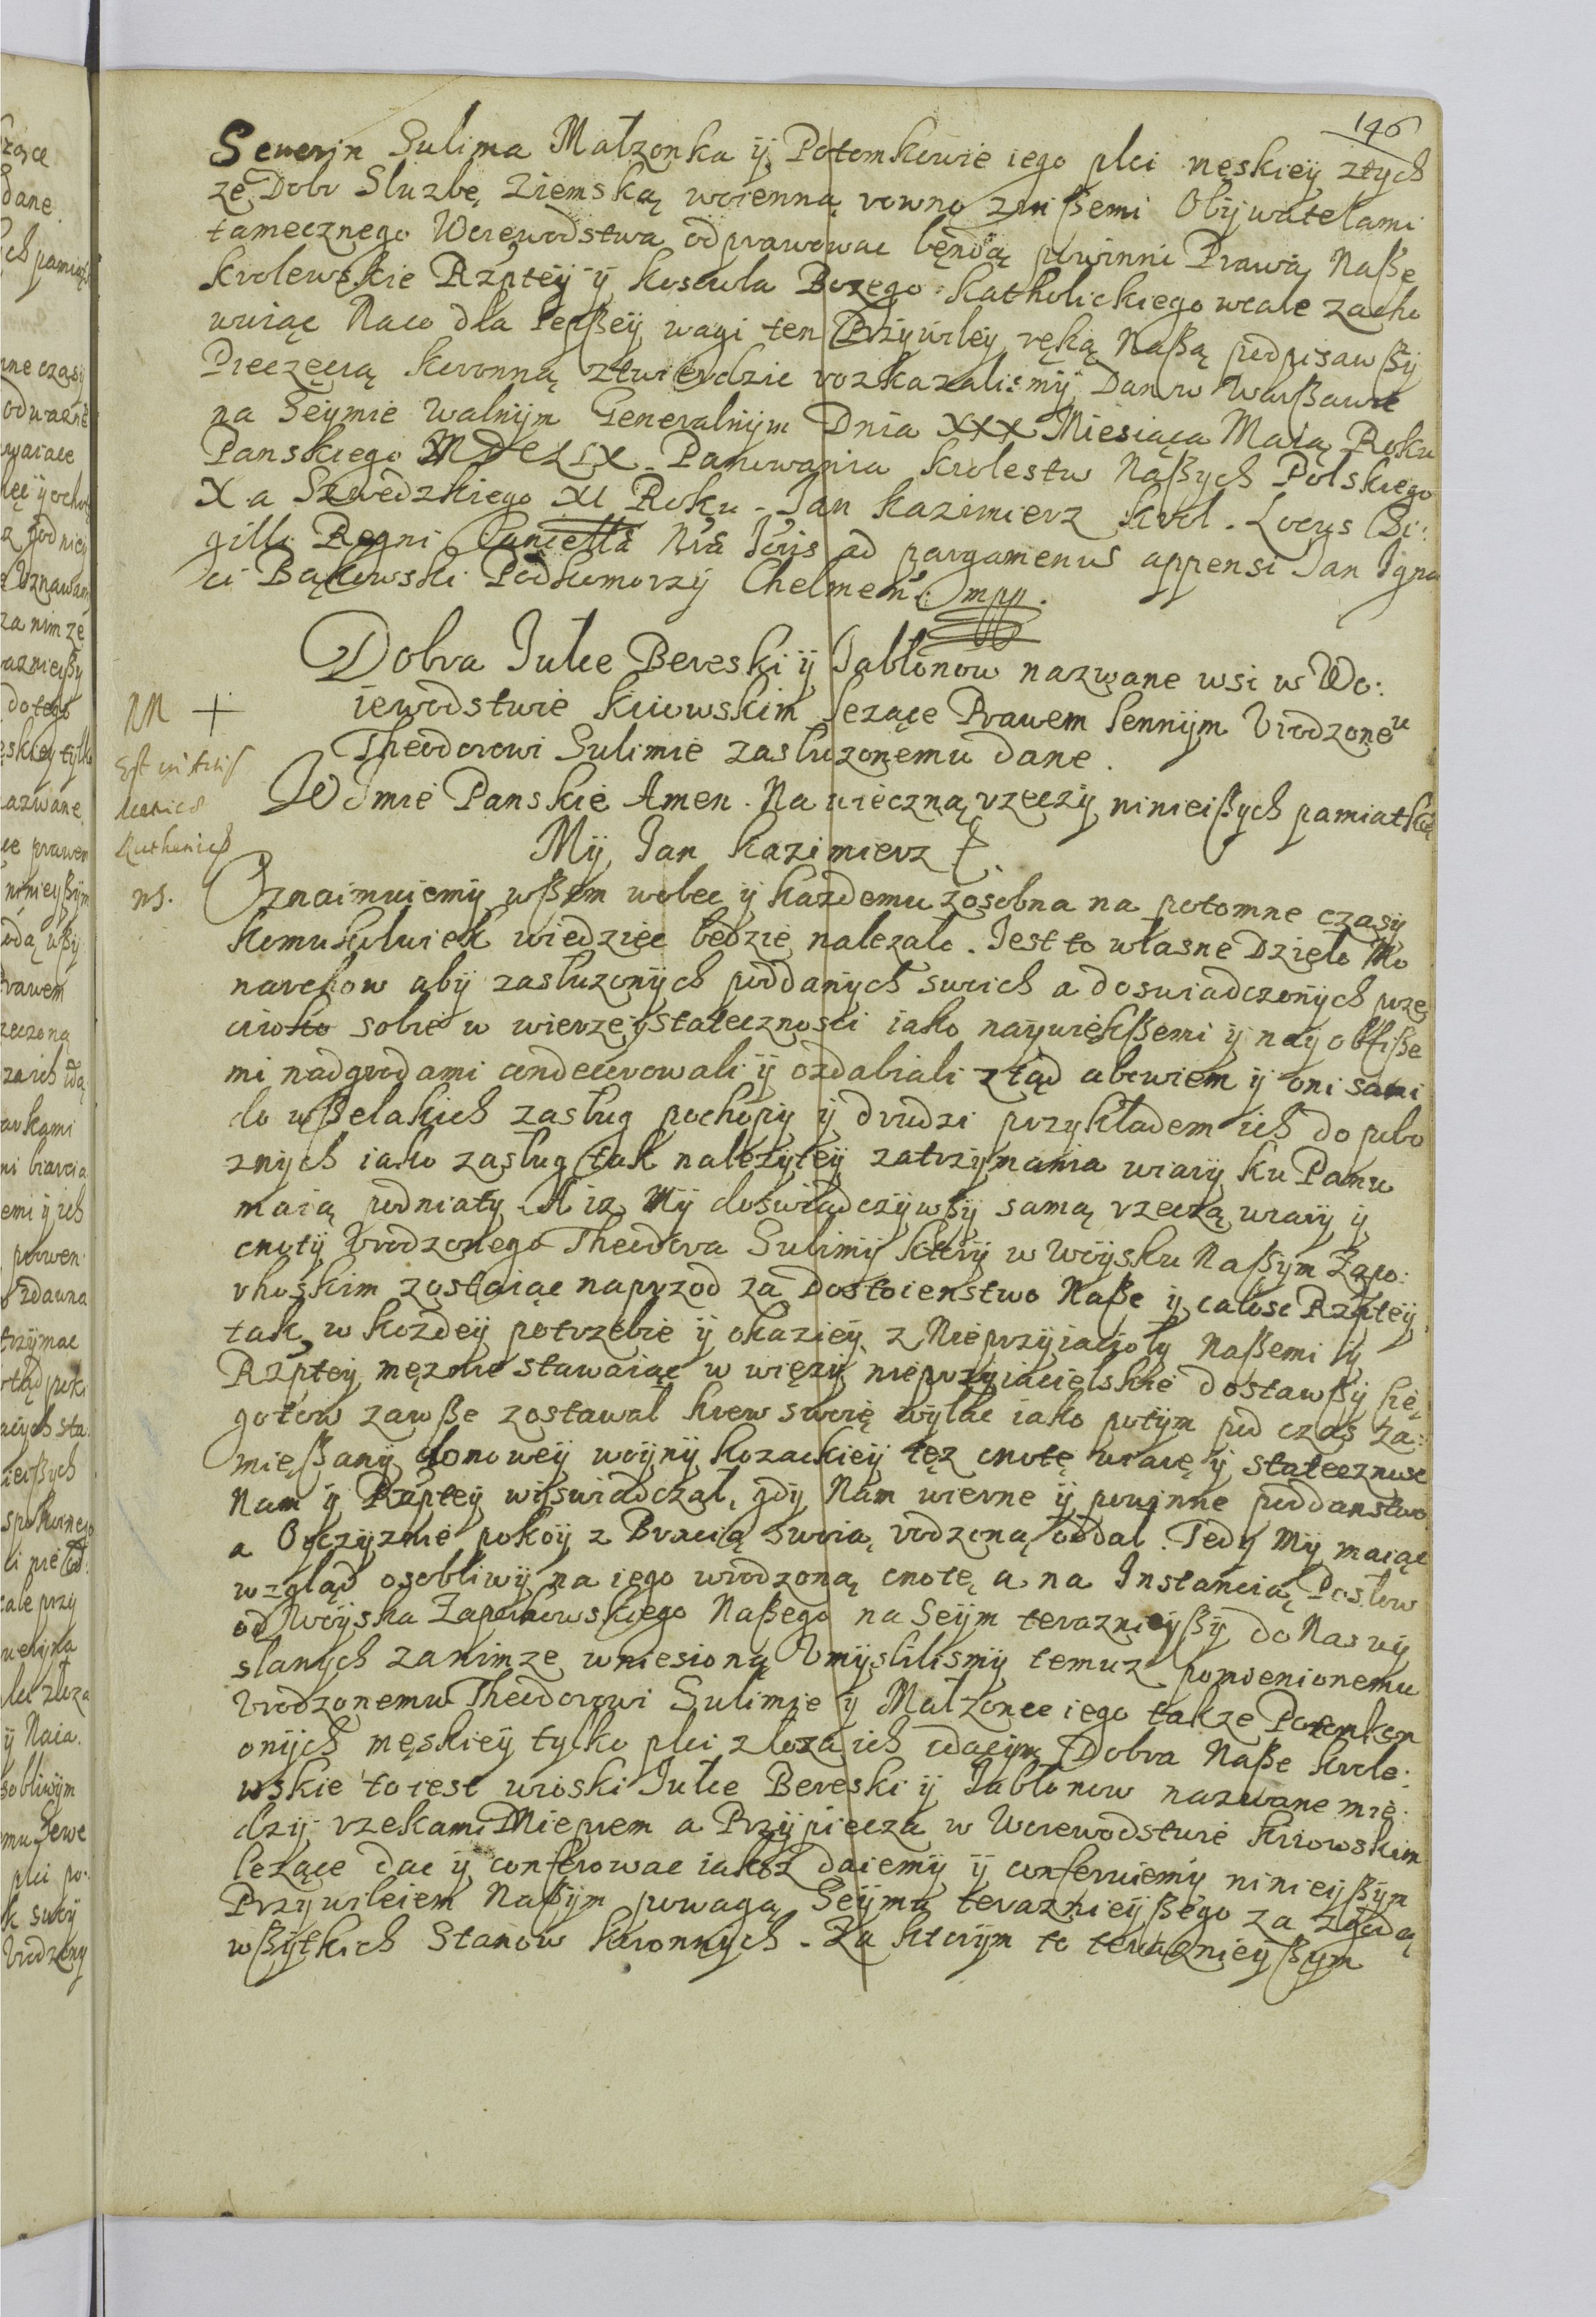 146
Severin Sulima Małzonka ÿ Potomkowie iego płci męskieÿ ztych
ze Dobr Słuzbę Ziemską woienną rowno zinßemi Obÿwatelami
tamecznego Woiewodstwa odprawowac będą powinni Prawa Naße
krolewskie Rzpteÿ ÿ koscioła Bozego Katholickiego wcale zacho
wuiąc Naco dla lepßeÿ wagi ten Przÿwileÿ ręką Naßą podpisawßÿ
Pieczęcią koronną ztwierdzic rozkazalismÿ Dan w Warßawie
na Seÿmie Walnÿm Generalnÿm Dnia XXX Miesiąca Maia Roku
Panskiego MDCLIX. Panowania krolestw Naßÿch Polskiego
X a Szwedzkiego XI Roku - Jan Kazimierz krol. Locus Si:
gilli Regni Cancellà Nrà Iôris ad pargamenus appensi Jan Igna
ci Bąkowski Podkomorzÿ Chełmeń: mpp.
Dobra Jutce Bereski ÿ Jabłonow nazwane wsi w Wo:
iewodstwie kiiowskim lezące Prawem lennÿm Vrodzoneu
Theodorowi Sulimie zasłuzonemu dane.
NN +
Est in Actis
Metrices
Ruthenices
ns.
W Jmie Panskie Amen. Na wieczną rzeczÿ ninieißÿch pamiatkę
Mÿ Jan Kazimierz &
Oznaimuiemÿ wßem wobec ÿ kazdemu zosobna na potomne czasÿ
komukolwiek wiedziec będzie nalezało. Jest to własne Dzieło Mo
narchow abÿ zasłuzonÿch poddanÿch swoich a doswiadczonÿch prze
ciwko sobie w wierze ÿ statecznosci iako naÿwiękßemi ÿ naÿobfiße
mi nadgrodami condecorowali ÿ ozdabiali ztąd abowiem ÿ oni sami
do wßelakich zasług pochopÿ ÿ drudzi przykładem ich do pobo
znÿch iako zasług tak nalezÿteÿ zatrzÿmania wiarÿ ku Panu
maią podniatÿ. A iz Mÿ doswiadczÿwßÿ samą rzeczą wiarÿ ÿ
cnotÿ Vrodzonego Theodora Sulimÿ ktorÿ w Woÿsku Naßÿm Zapo:
rhoskim zostaiąc naprzod za Dostoienstwo Naße ÿ całosc Rzptÿ
tak w kozdeÿ potrzebie ÿ okazieÿ z Nieprzyiacioły Naßemi ÿ
Rzpteÿ męznie stawaiąc w więzÿ nieprzyiacielskie dostawßÿ się
gotow zawße zostawał krew swoię wÿlac iako potÿm pod czas za:
mięßanÿ domoweÿ woÿnÿ kozackieÿ tęz cnotę wiarę ÿ statecznosc
Nam ÿ Rzpteÿ wÿswiadczał, gdÿ Nam wierne ÿ powinne poddanstwo
a Oÿczyznie pokoÿ z Bracią swoią rodzoną oddał. Tedÿ Mÿ maiąc
wzgląd osobliwÿ na iego wrodzoną cnotę a na Instancią Posłow
od Woÿska Zaporowskiego Naßego na Seÿm teraznieÿßÿ do Nas wÿ
słanÿch zanimze wniesioną Vmÿslilismÿ temuz pomienionemu
Vrodzonemu Theodorowi Sulimie ÿ Małzonce iego takze Potomkom
onÿch męskieÿ tylko płci złoza ich idącÿm Dobra Naße krole:
wskie to iest wioski Jutce Bereski ÿ Jabłonow nazwane mie:
dzÿ rzekami Dnieprem a Przÿpiecza w Woiewodstwie kiiowskim
lezące dac ÿ conferowac iakoz daiemÿ ÿ conferuiemÿ ninieÿßÿm
Przÿwileiem Naßÿm powagą Seÿmu teraznieÿßego za zgodą
wßÿtkich Stanow koronnÿch. Za ktorÿm to teraznieÿßÿm